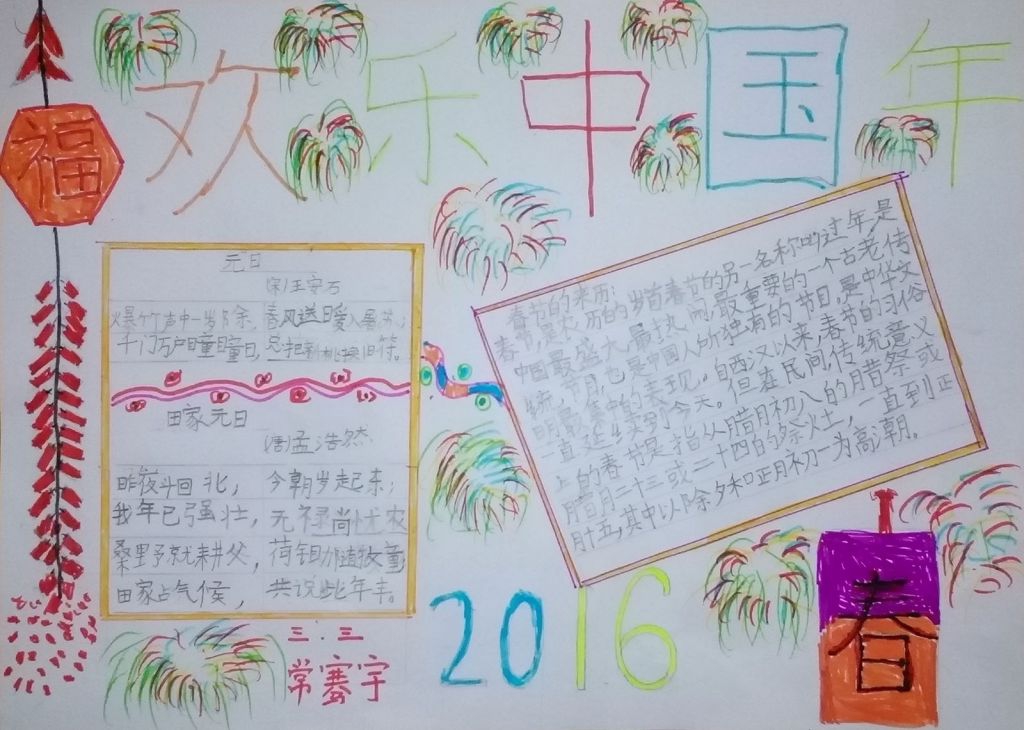 欢乐中国年
福
元日
宋 王安石
爆竹声中一岁除,春风送暖入屠苏;
千门万户曈曈日,总把新桃换旧符。
田家元日
唐 孟浩然
昨夜斗回北,今朝岁起东;
我年已强壮,无禄尚忧农
桑野就耕父,荷锄随牧童
田家占气候,共说此年丰。
春节的来历:
春节,是农历的岁首春节的另一名称叫过年是
中国最盛大、最热闹、最重要的一个古老传
统节日,也是中国人所独有的节日,是中华文
明最集中的表现。自西汉以来,春节的习俗
一直延续到今天。但在民间,传统意义
上的春节是指从腊月初八的腊祭或
腊月二十三或二十四的祭灶,一直到正
月十五,其中以除夕和正月初一为高潮。
三.三
常骞宇
2016
春